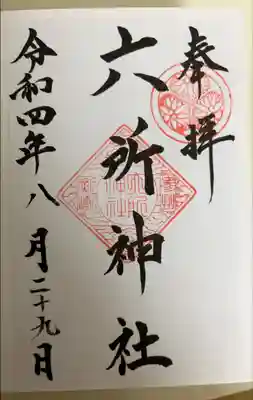 奉拝
六所神社
令和四年八月二十九日